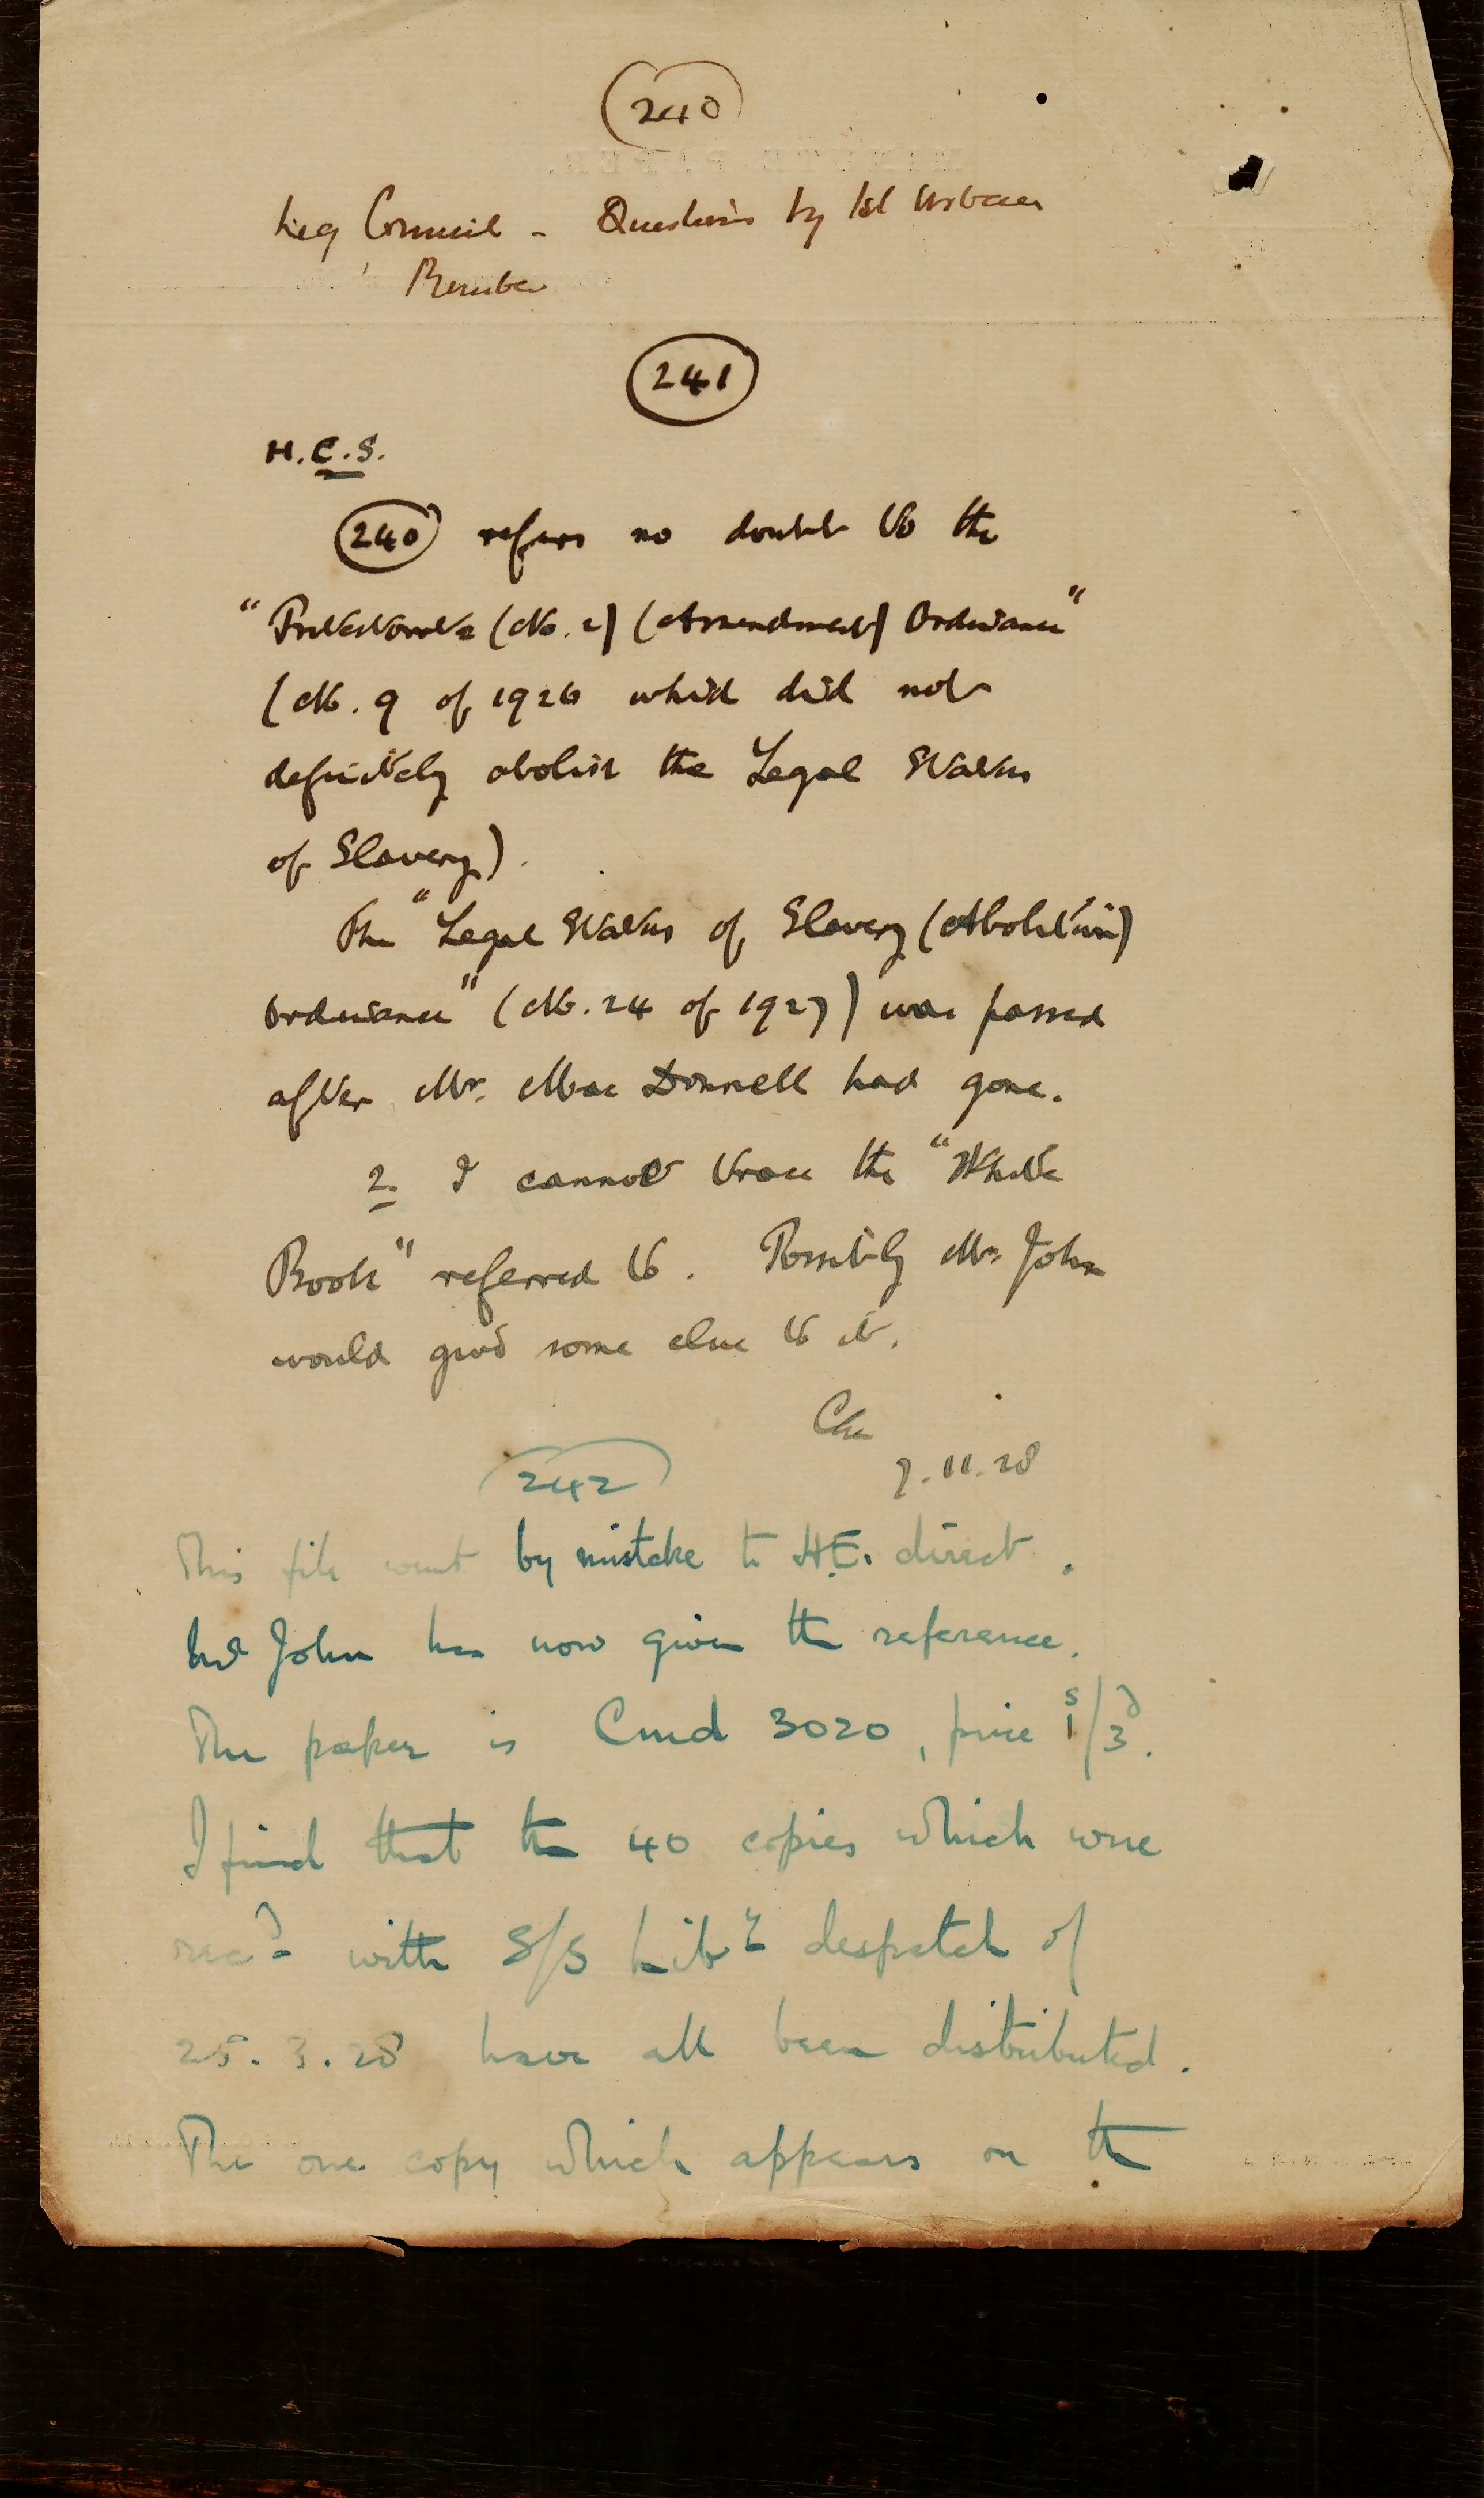 240
Leg Council - Questions by 1st Urban
Member
241
H.C.S.
240 refers no doubt to the
"Protectorate (No. 2) (Amendment) Ordinance"
(No. 9 of 1926 which did not
definitely abolish the Legal Status
of Slavery).
The "Legal Status of Slavery (Abolition)
Ordinance" (No. 24 of 1927) was passed
after Mr. MacDonnell had gone.
2. I cannot trace the "White
Book" referred to. Possibly Mr John
would give some clue to it.
7.11.28
242
This file went by mistake to H.E. direct.
Mr John has now given the reference.
The paper is Cmd 3020, price 1s/3d.
I find that the 40 copies which were
recd with S/S Liby despatch of
25.3.28 have all been distributed.
The one copy which appears on the